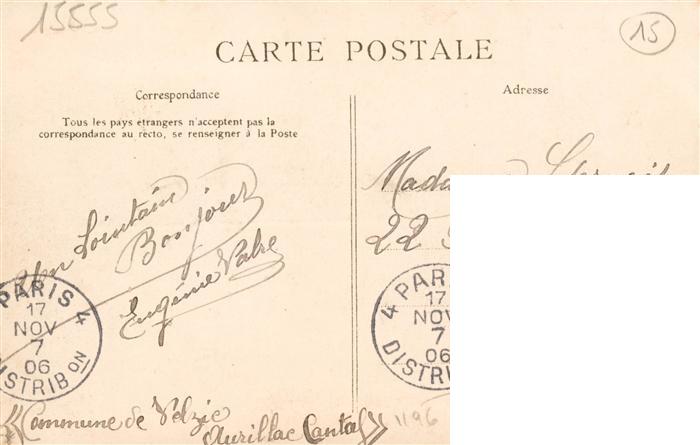 15555
15
CARTE POSTALE
Correspondance
Tous les pays étrangers n'acceptent pas la
correspondance au recto, se renseigner à la Poste
Un Lointain
Bonjour
Eugénie
PARIS 4
17
NOV
7
06
DISTRIB ON
«Commune de Velzic
Aurillac Cantal»
Adresse
22
4 PARIS
17
NOV
7
06
DISTRIB
1196